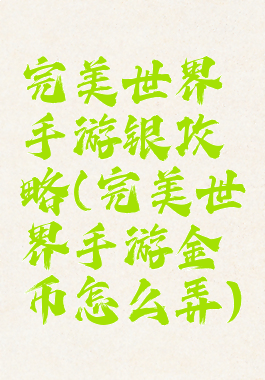 完美世界
手游银攻
略(完美世
界手游金
币怎么弄)